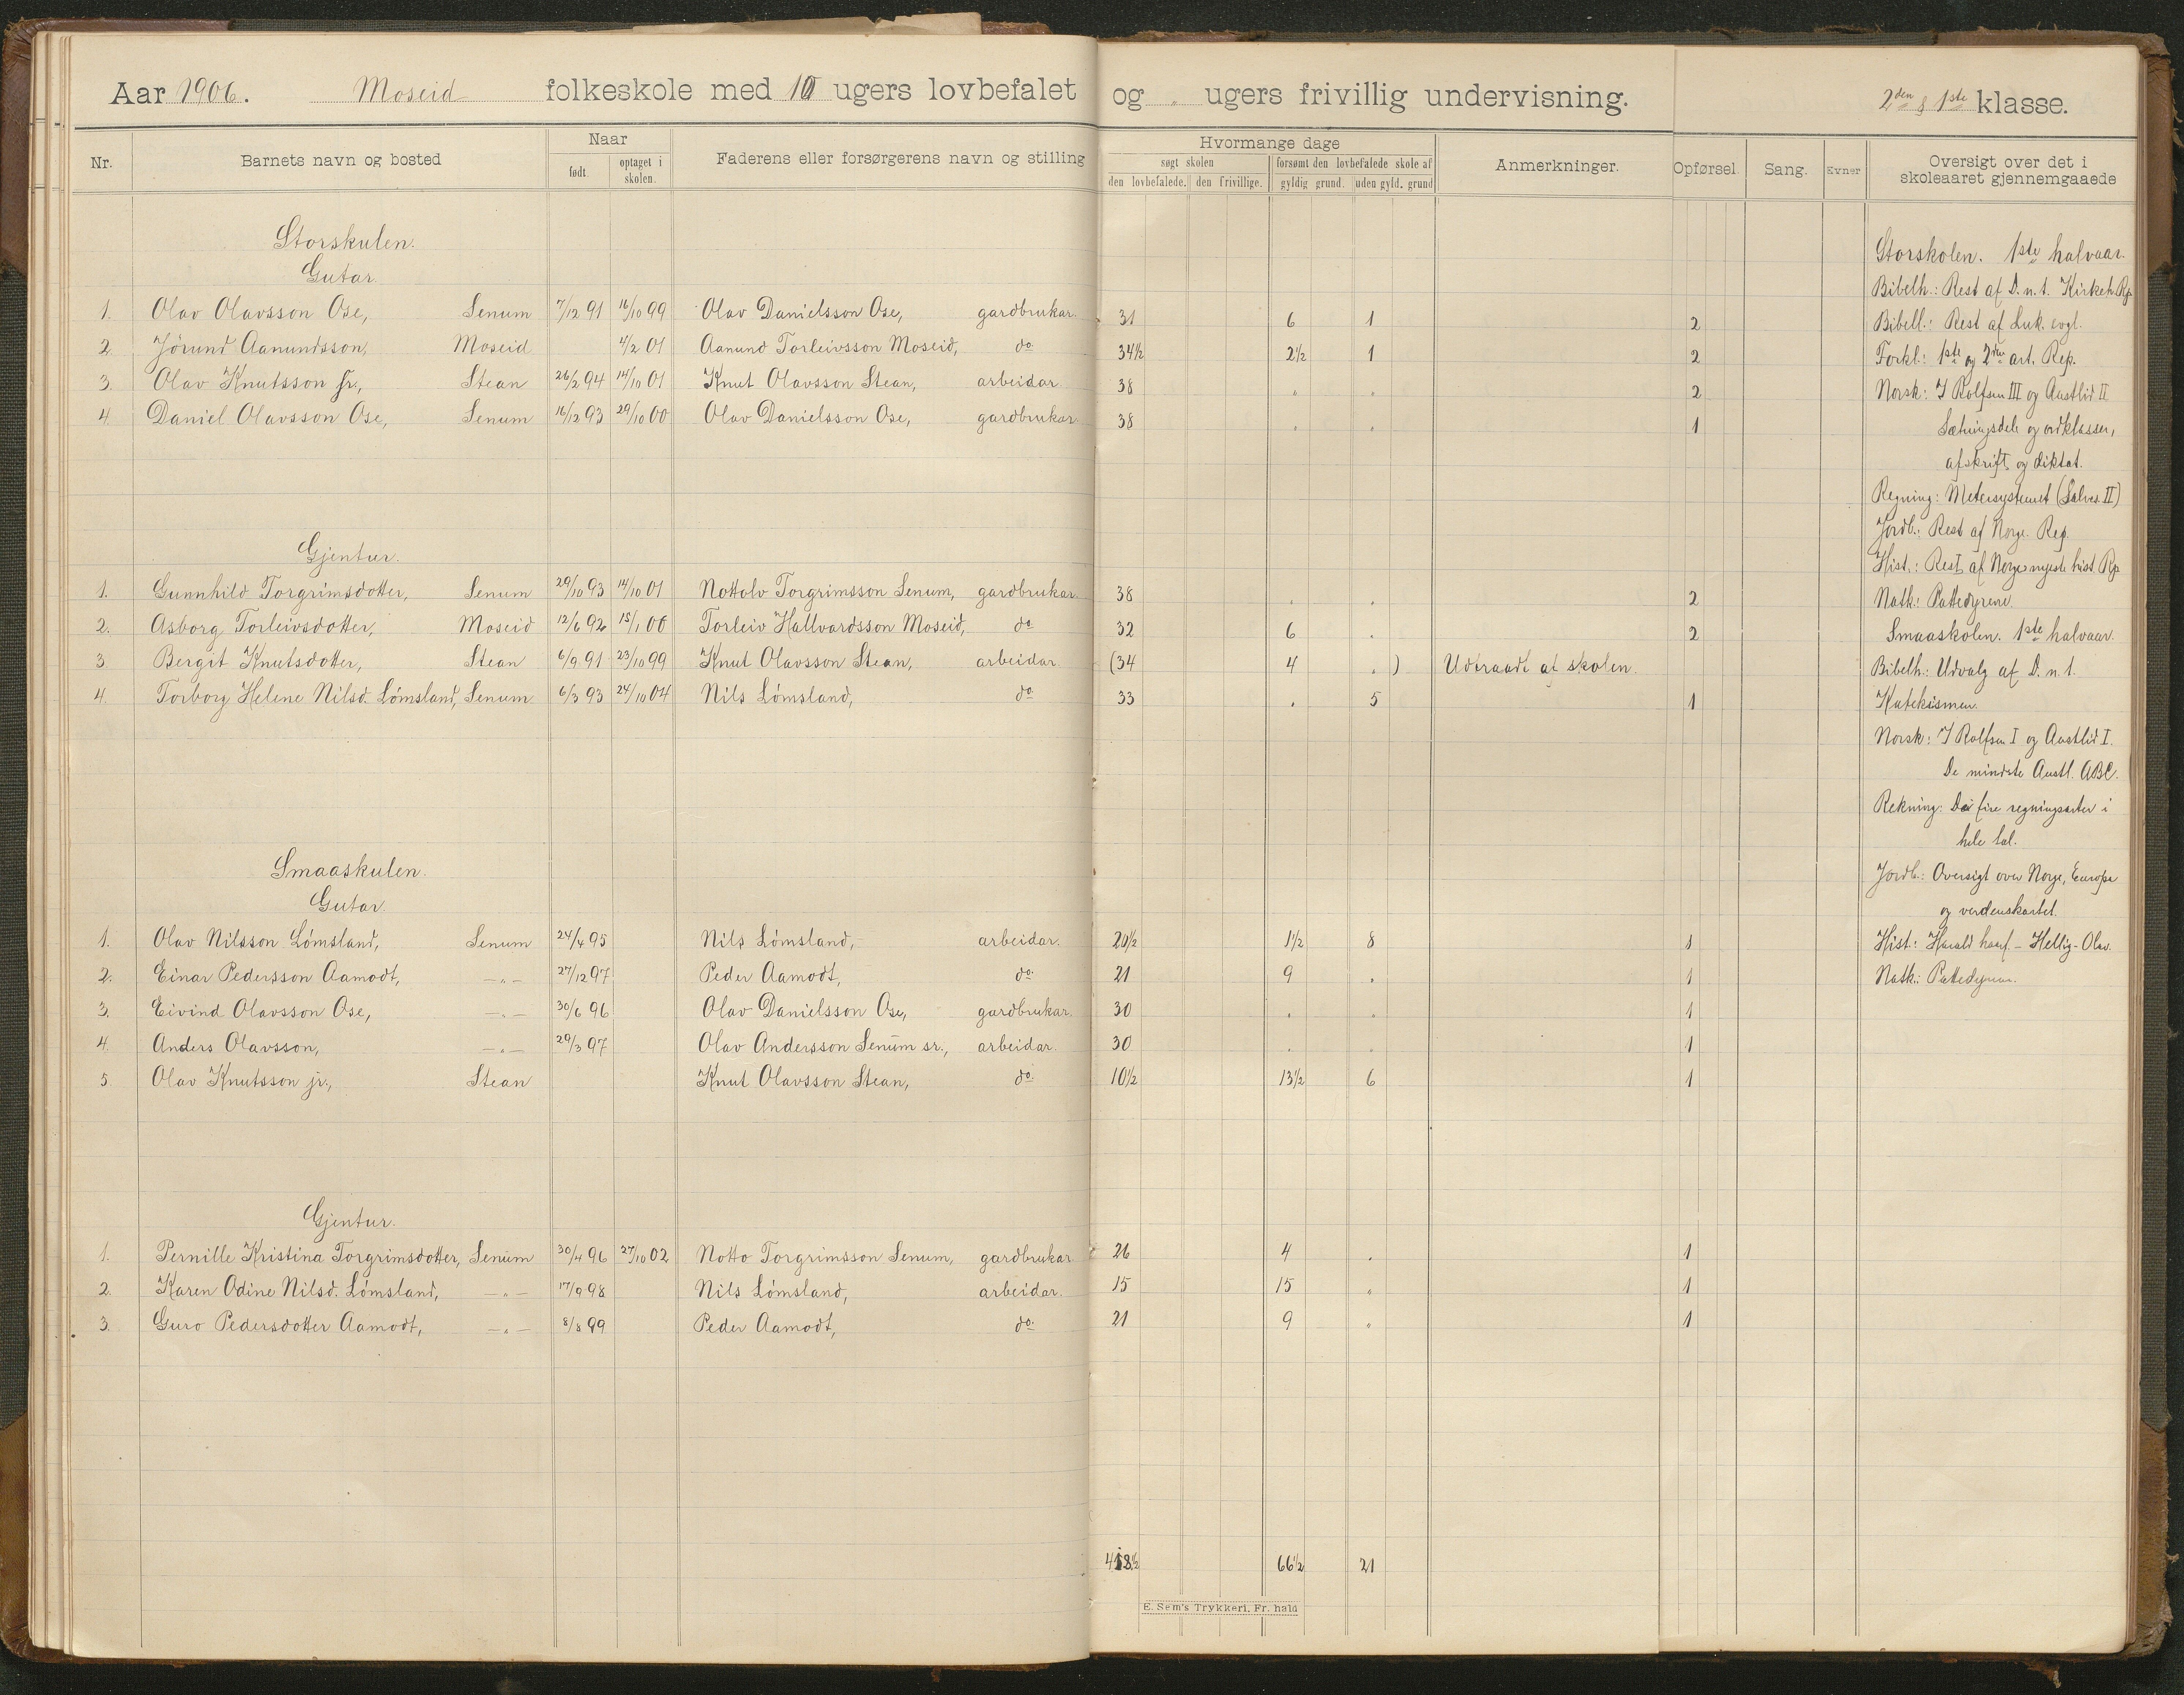 Aar 1906. Moseid folkeskole med 10 ugers lovbefalet og „ ugers frivillig undervisning. 2den & 1ste klasse.
Nr. Barnets navn og bosted Naar Faderens eller forsørgerens navn og stilling Hvormange dage Anmerkninger. Opførsel. Sang. Evner Oversigt over det i skoleaaret gjennemgaaede
født. optaget i skolen. søgt skolen forsømt den lovbefalede skole af
den lovbefalede. den frivillige. gyldig grund. uden gyld. grund
Storskulen.
Gutar.
1. Olav Olavsson Ose, Senum 7/12 91 16/10 99 Olav Danielsson Ose, gardbrukar. 31 6 1 2
2. Jörund Aanundsson, Moseid 4/2 01 Aanund Torleivsson Moseid, do 34½ 2½ 1 2
3. Olav Knutsson sr., Stean 26/2 94 14/10 01 Knut Olavsson Stean, arbeidar. 38 „ „ 2
4. Daniel Olavsson Ose, Senum 16/12 93 29/10 00 Olav Danielsson Ose, gardbrukar. 38 „ „ 1
Gjentur.
1. Gunnhild Torgrimsdotter, Senum 29/10 93 14/10 01 Nottolv Torgrimsson Senum, gardbrukar. 38 „ „ 2
2. Asborg Torleivsdotter, Moseid 12/6 92 15/1 00 Torleiv Hallvardsson Moseid, do 32 6 „ 2
3. Bergit Knutsdotter, Stean 6/9 91 23/10 99 Knut Olavsson Stean, arbeidar. (34 4 „ ) Udtraadt af skolen.
4. Torborg Helene Nilsd. Lömsland, Senum 6/3 93 24/10 04 Nils Lömsland, do 33 „ 5 1
Smaaskulen.
Gutar.
1. Olav Nilsson Lömsland, Senum 24/4 95 Nils Lömsland, arbeidar. 20½ 1½ 8 1
2. Einar Pedersson Aamodt, —„— 27/12 97 Peder Aamodt, do. 21 9 „ 1
3. Eivind Olavsson Ose, —„— 30/6 96 Olav Danielsson Ose, gardbrukar. 30 „ „ 1
4. Anders Olavsson, —„— 29/3 97 Olav Andersson Senum sr., arbeidar. 30 „ „ 1
5. Olav Knutsson jr., Stean Knut Olavsson Stean, do. 10½ 13½ 6 1
Gjentur.
1. Pernille Kristina Torgrimsdotter, Senum 30/4 96 27/10 02 Notto Torgrimsson Senum, gardbrukar 26 4 „ 1
2. Karen Odine Nilsd. Lömsland, —„— 17/9 98 Nils Lömsland, arbeidar. 15 15 „ 1
3. Guro Pedersdotter Aamodt, —„— 8/8 99 Peder Aamodt, do. 21 9 „ 1
66½ 21
E. Sem's Trykkeri, Fr. hald
Storskolen. 1ste halvaar.
Bibelh.: Rest af D. n. t. Kirkeh. Rp.
Bibell.: Rest af Luk. evgl.
Forkl.: 1ste og 2den art. Rep.
Norsk: I Rolfsen III og Austlid II
Sætningsdele og ordklasser,
afskrift og diktat.
Regning: Metersystemet (Salves. II)
Jordb.: Rest af Norge. Rep.
Hist.: Rest af Norges nyeste hist. Rp
Natk.: Pattedyrene.
Smaaskolen. 1ste halvaar.
Bibelh.: Udvalg af D. n. t.
Katekismen.
Norsk: I Rolfsen I og Austlid I.
De mindste Austl. ABC.
Rekning: De fire regningsarter i
hele tal.
Jordb.: Oversigt over Norge, Europa
og verdenskartet.
Hist.: Harald haarf. - Hellig-Olav.
Natk.: Pattedyrene.